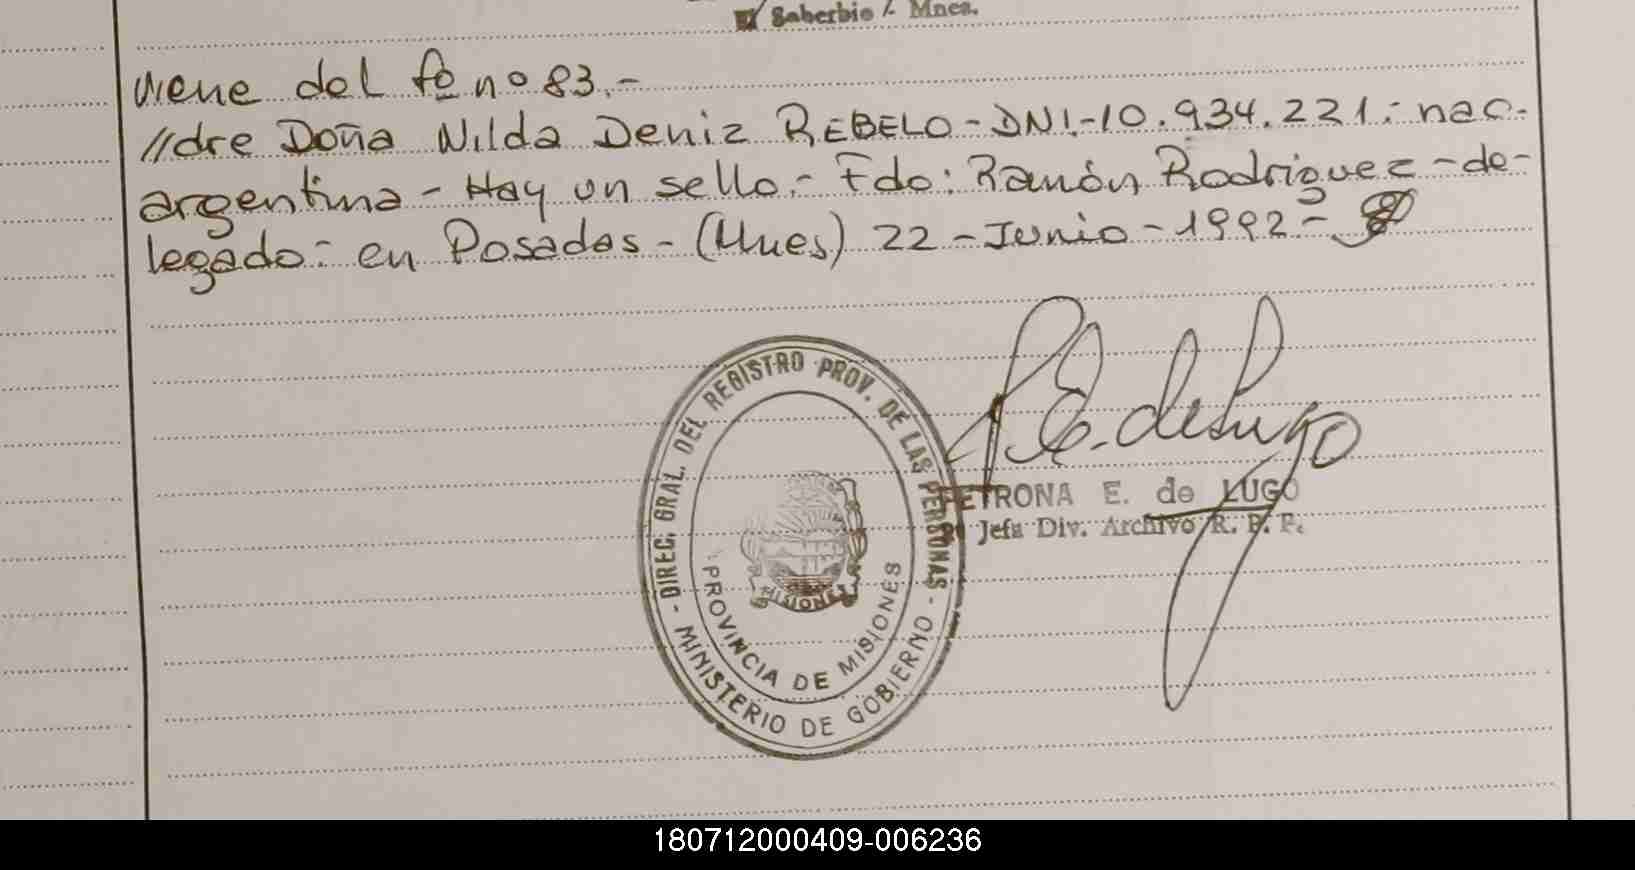 Soberbio / Mnes.
viene del fº nº 83.-
//dre Doña Nilda Deniz REBELO - DNI.-10.934.221.- nac.-
argentina - Hay un sello.- Fdo: Ramón Rodriguez - de-
legado.- en Posadas - (Mnes) 22 - Junio - 1992 -
- DIREC. GRAL. DEL REGISTRO PROV. DE LAS PERSONAS -
MINISTERIO DE GOBIERNO
PROVINCIA DE MISIONES
MISIONES
P.E. de Lugo
PETRONA E. de LUGO
Jefa Div. Archivo R. P. P.
180712000409-006236